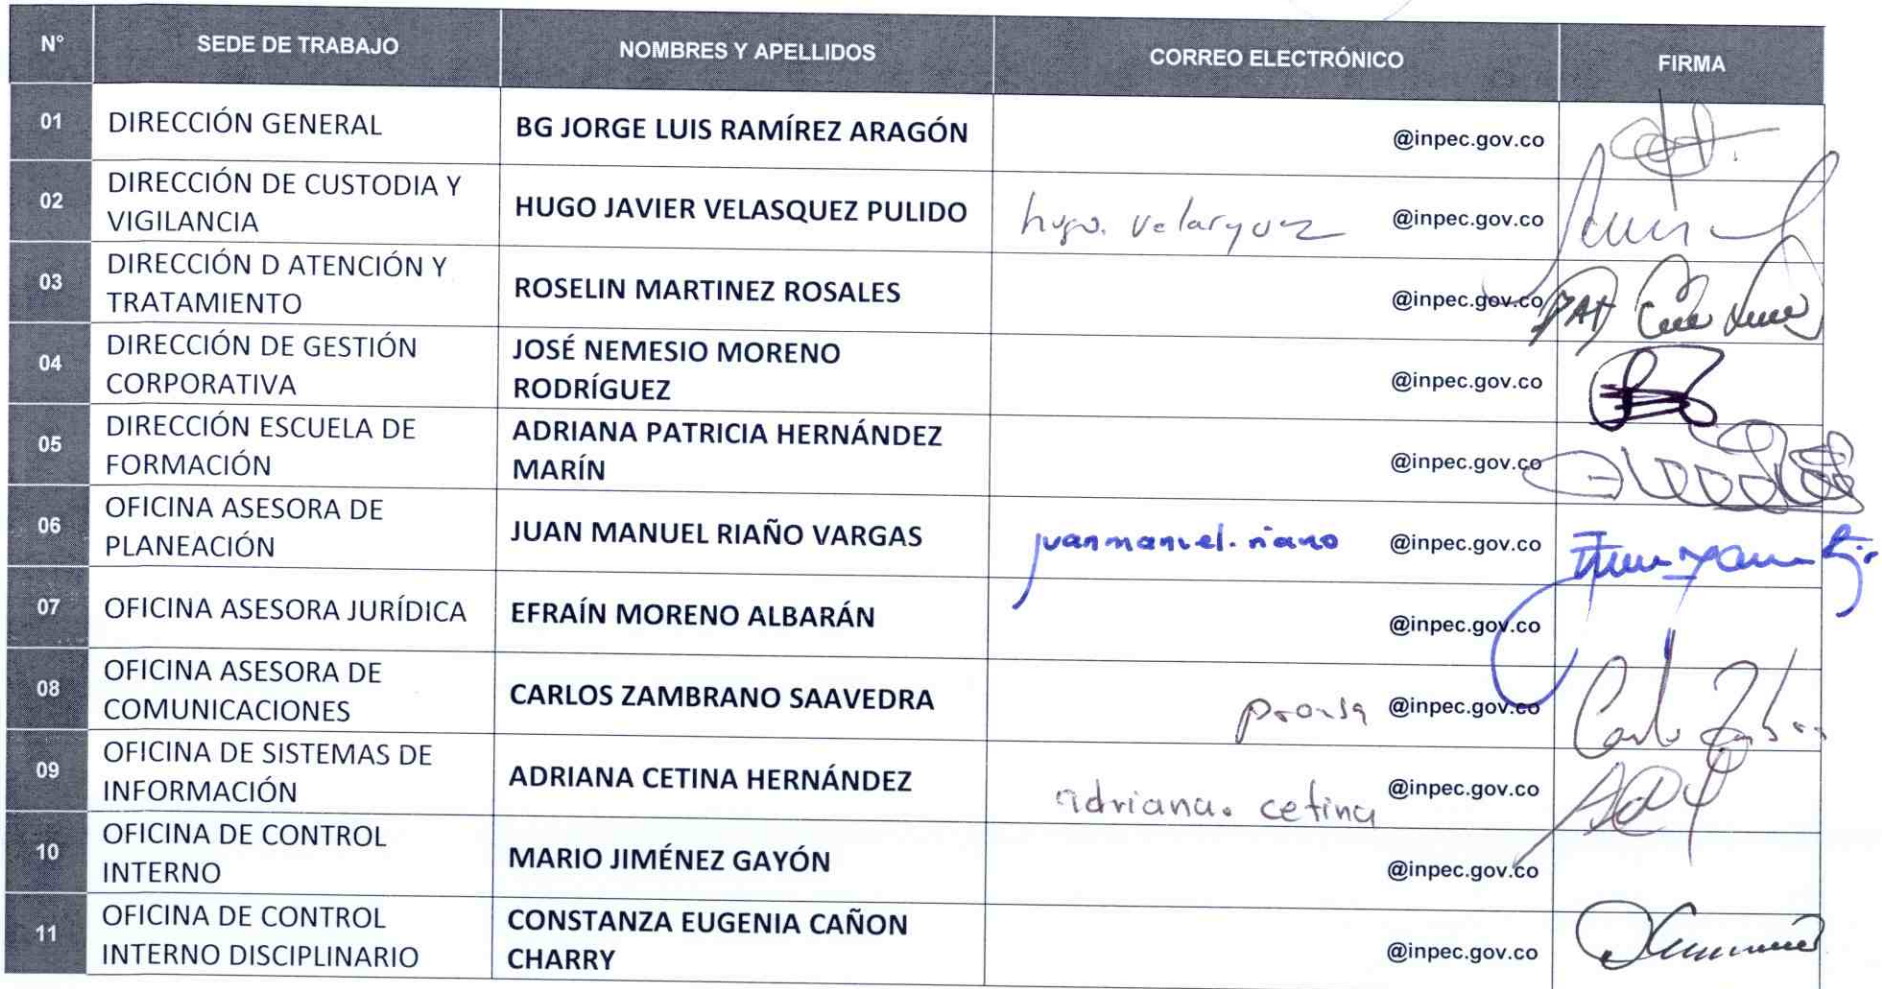 N° SEDE DE TRABAJO NOMBRES Y APELLIDOS CORREO ELECTRÓNICO FIRMA
01 DIRECCIÓN GENERAL BG JORGE LUIS RAMÍREZ ARAGÓN @inpec.gov.co
02 DIRECCIÓN DE CUSTODIA Y
VIGILANCIA HUGO JAVIER VELASQUEZ PULIDO hugo.velasquez @inpec.gov.co
03 DIRECCIÓN D ATENCIÓN Y
TRATAMIENTO ROSELIN MARTINEZ ROSALES @inpec.gov.co
04 DIRECCIÓN DE GESTIÓN
CORPORATIVA JOSÉ NEMESIO MORENO
RODRÍGUEZ @inpec.gov.co
05 DIRECCIÓN ESCUELA DE
FORMACIÓN ADRIANA PATRICIA HERNÁNDEZ
MARÍN @inpec.gov.co
06 OFICINA ASESORA DE
PLANEACIÓN JUAN MANUEL RIAÑO VARGAS juanmanuel.riano @inpec.gov.co
07 OFICINA ASESORA JURÍDICA EFRAÍN MORENO ALBARÁN @inpec.gov.co
08 OFICINA ASESORA DE
COMUNICACIONES CARLOS ZAMBRANO SAAVEDRA @inpec.gov.co
09 OFICINA DE SISTEMAS DE
INFORMACIÓN ADRIANA CETINA HERNÁNDEZ adriana.cetina @inpec.gov.co
10 OFICINA DE CONTROL
INTERNO MARIO JIMÉNEZ GAYÓN @inpec.gov.co
11 OFICINA DE CONTROL
INTERNO DISCIPLINARIO CONSTANZA EUGENIA CAÑON
CHARRY @inpec.gov.co